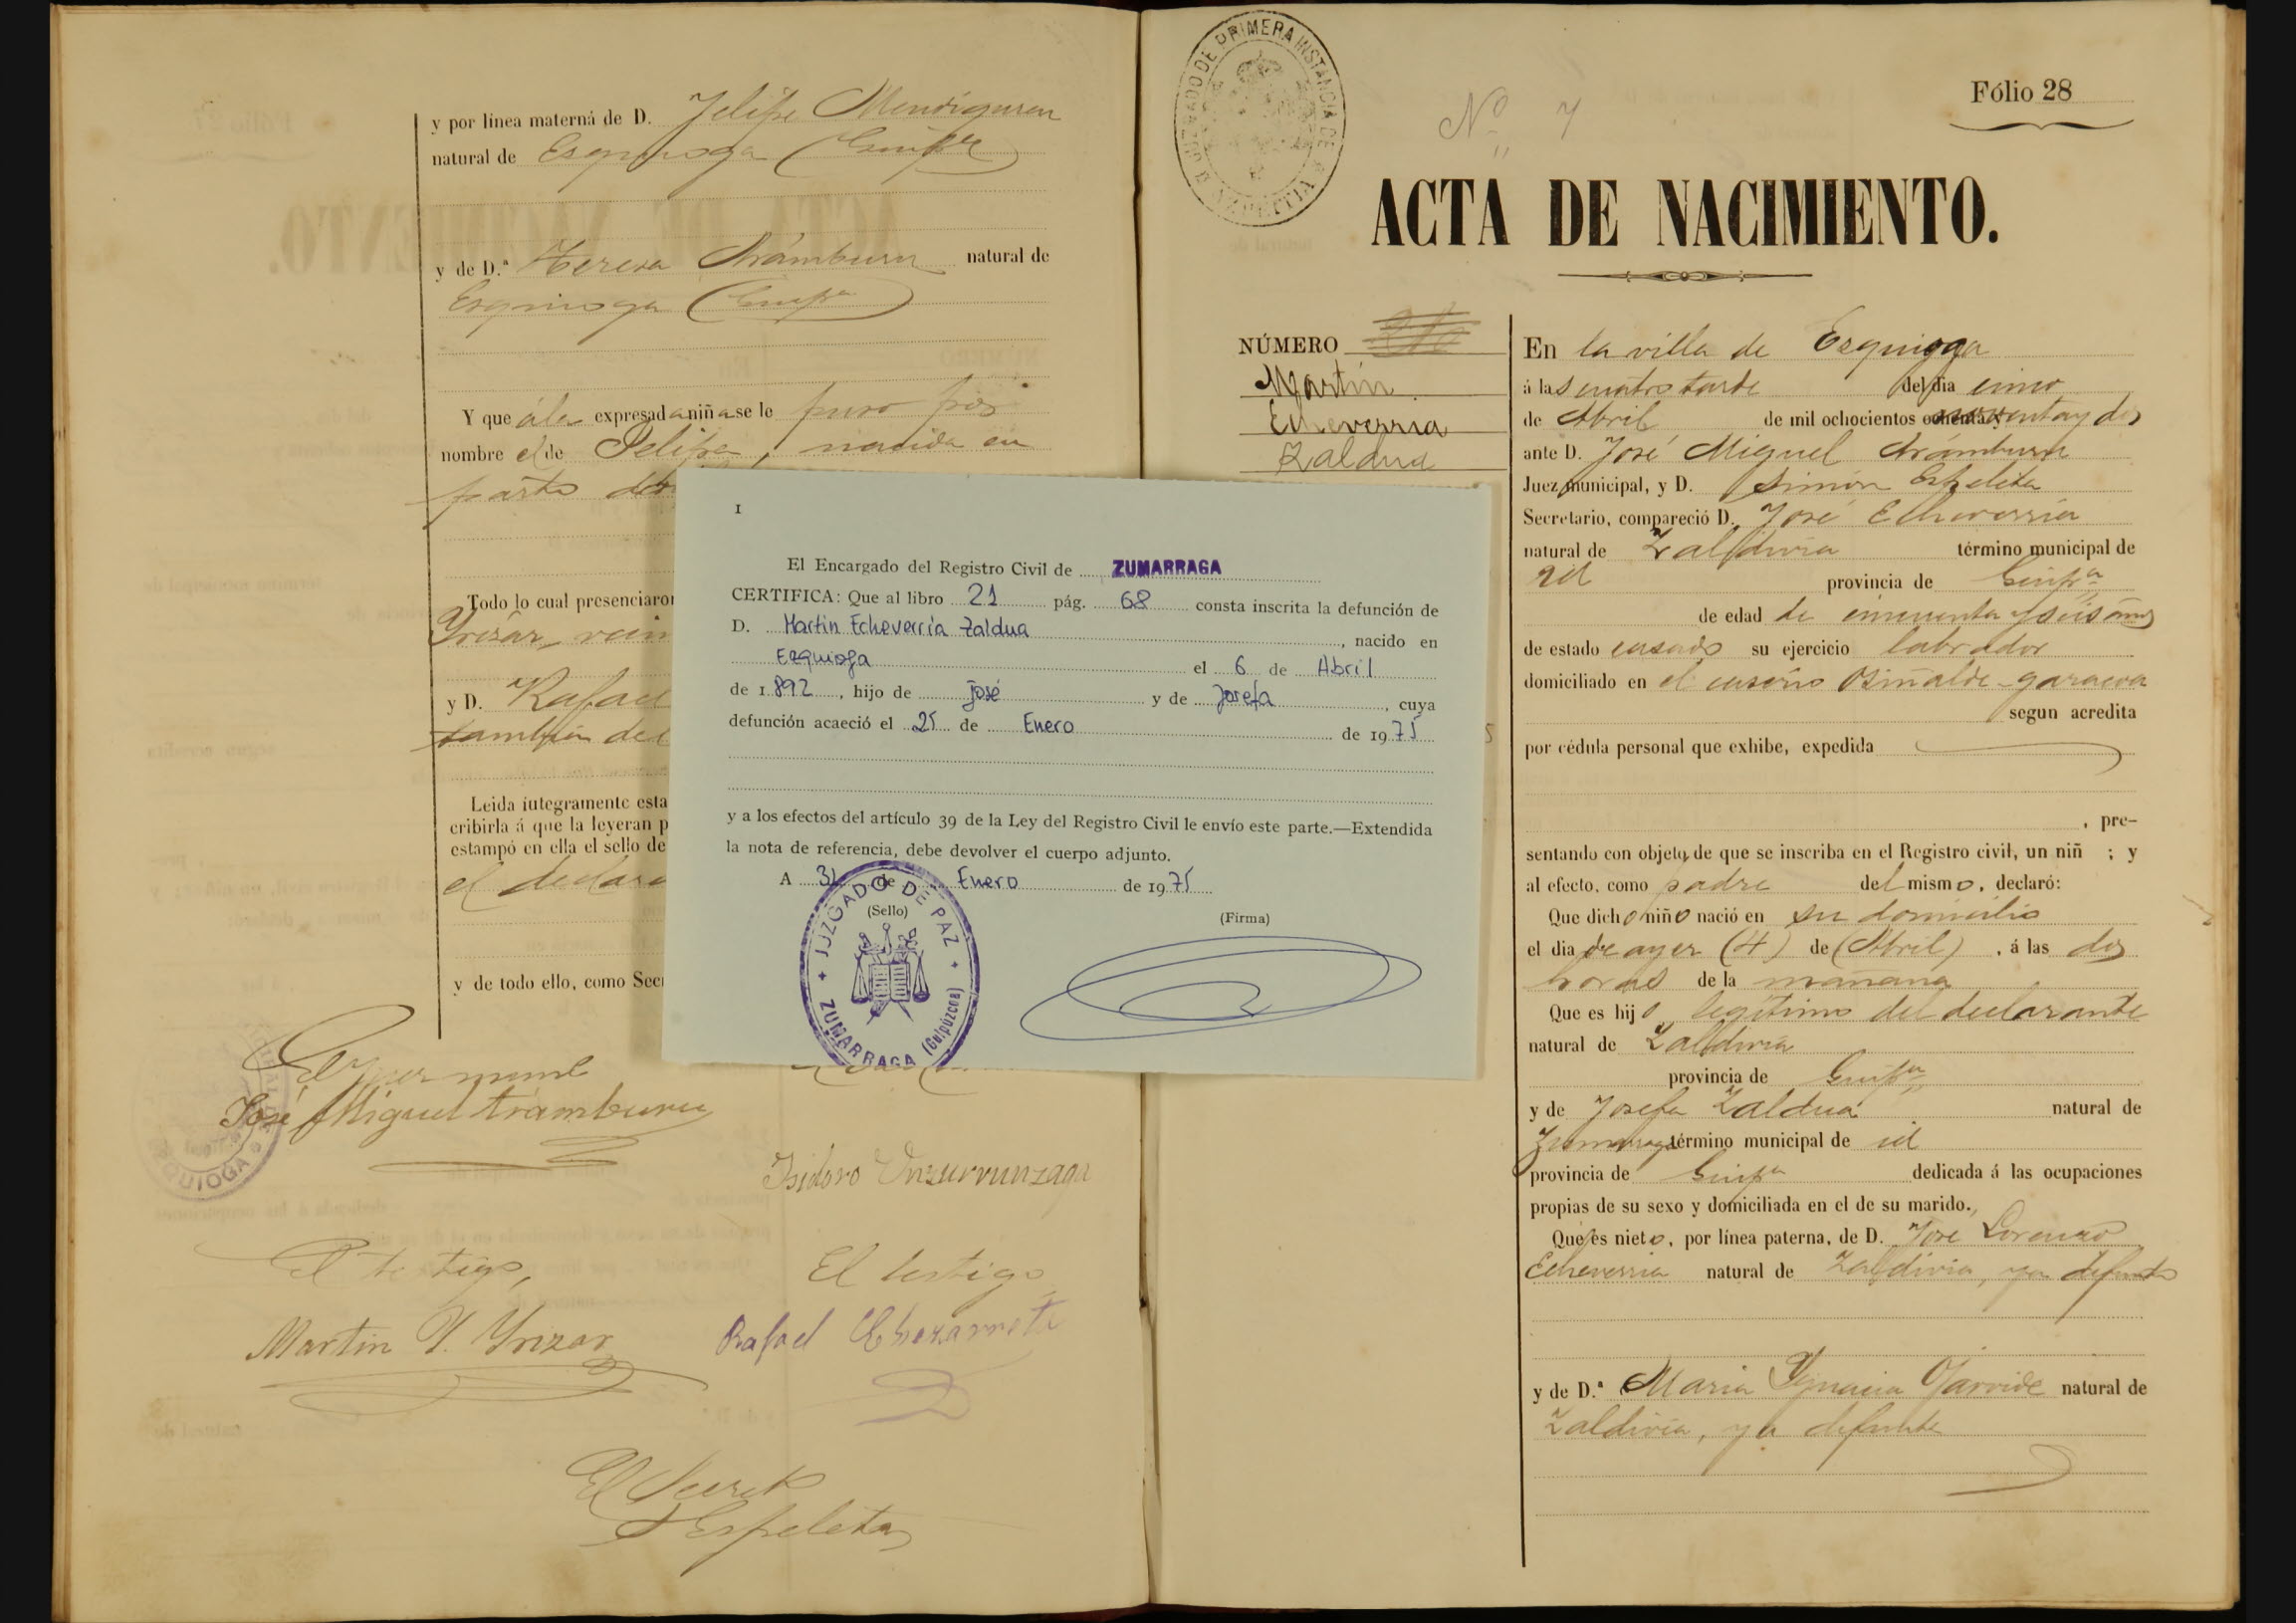 y por linea materná de D. Felipe Mendiguren
natural de Esquioga (Guipca)
y de D.ª Teresa Arámburu natural de
Esquioga (Guipa)
Y que á la expresada niña se le puso por
nombre el de Felipa, nacida en
parto
Todo lo cual presenciaron
Yrizar,
y D. Rafael
también del
Leida integramente esta
cribirla á que la leyeran p
estampó en ella el sello de
el declara
y de todo ello, como Secr
José Miguel Arámburu
QUIOGA
Isidoro Unzurrunzaga
El testigo,
El testigo
Martin Y. Yrizar
Rafael Echezarreta
El Secreto
Espeleta
I
El Encargado del Registro Civil de ZUMARRAGA
CERTIFICA: Que al libro 21 pág. 68 consta inscrita la defunción de
D. Martin Echeverría Zaldua, nacido en
Ezquioga el 6 de Abril
de 1.892, hijo de José y de Josefa, cuya
defunción acaeció el 25 de Enero de 1975
y a los efectos del artículo 39 de la Ley del Registro Civil le envío este parte.—Extendida
la nota de referencia, debe devolver el cuerpo adjunto.
A 31 de Enero de 1975
(Sello)
(Firma)
JUZGADO DE PAZ
ZUMARRAGA (Guipúzcoa)
JUZGADO DE PRIMERA INSTANCIA DE
AZPEITIA
Nº 7
Fólio 28
ACTA DE NACIMIENTO.
NÚMERO
Martin
Echeverria
Zaldua
En la villa de Ezquioga
á las cuatro tarde del dia cinco
de Abril de mil ochocientos noventa y dos
ante D. José Miguel Arámburu
Juez municipal, y D. Simón Espeleta
Secretario, compareció D. José Echeverria
natural de Zaldivia término municipal de
id provincia de Guipca
de edad de cincuenta y seis años
de estado casado su ejercicio labrador
domiciliado en el caserio
segun acredita
por cédula personal que exhibe, expedida
, pre-
sentando con objeto de que se inscriba en el Registro civil, un niñ ; y
al efecto, como padre del mismo, declaró:
Que dicho niño nació en su domicilio
el dia de ayer (4) de (Abril), á las dos
horas de la mañana
Que es hijo legítimo del declarante
natural de Zaldivia
provincia de Guipca
y de Josefa Zaldua natural de
Zumarraga término municipal de id
provincia de Guipa dedicada á las ocupaciones
propias de su sexo y domiciliada en el de su marido.
Que es nieto, por línea paterna, de D. José Lorenzo
Echeverria natural de Zaldivia, ya defunto
y de D.ª Maria Ygnacia Garride natural de
Zaldivia, ya defunta